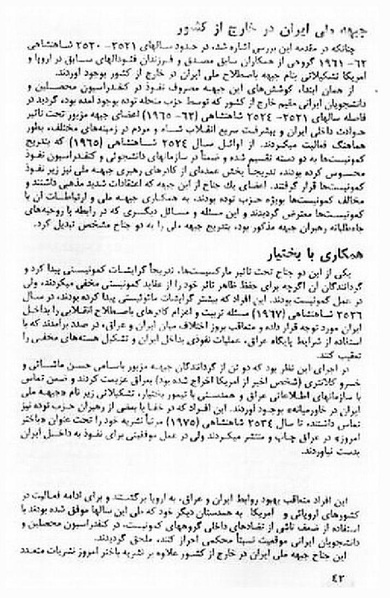 جبهه ملی ایران در خارج از کشور
چنانکه در مقدمه این بررسی اشاره شد، در حدود سالهای ۲۵۲۱- ۲۵۲۰ شاهنشاهی
۶۲- ۱۹۶۱ گروهی از همکاران سابق مصدق و فرزندان فئودالهای سابق در اروپا و
امریکا تشکیلاتی بنام جبهه باصطلاح ملی ایران در خارج از کشور بوجود آوردند.
از همان ابتدا، کوشش‌های این جبهه مصروف نفوذ در کنفدراسیون محصلین و
دانشجویان ایرانی مقیم خارج از کشور که توسط حزب منحله توده بوجود آمده بود، گردید در
فاصله سالهای ۲۵۲۱- ۲۵۲۴ شاهنشاهی (۶۳- ۱۹۶۵) اعضای جبهه مزبور تحت تاثیر
حوادث داخلی ایران و پیشرفت سریع انقلاب شاه و مردم در زمینه‌های مختلف، بطور
هماهنگ فعالیت میکردند. از اوائل سال ۲۵۲۴ شاهنشاهی (۱۹۶۵) که بتدریج
کمونیست‌ها به دو دسته تقسیم شده و ضمناً در سازمانهای دانشجوئی و کنفدراسیون نفوذ
محسوس کرده بودند، تدریجاً بخش عمده‌ای از کادرهای رهبری جبهه ملی نیز زیر نفوذ
کمونیست‌ها قرار گرفتند. اعضای یك جناح از این جبهه که اعتقادات شدید مذهبی داشتند و
مخالف کمونیست‌ها بویژه حزب توده بودند، به همکاری جبهه ملی و ارتباطات آن با
کمونیست‌ها معترض گردیدند و این مسئله و مسائل دیگری که در رابطه با روحیه‌های
جاه‌طلبانه رهبران جبهه مذکور بود، بتدریج جبهه ملی را به دو جناح مشخص تبدیل کرد.
همکاری با بختیار
یکی از این دو جناح تحت تاثیر مارکسیست‌ها، تدریجاً گرایشات کمونیستی پیدا کرد و
گردانندگان آن اگرچه برای حفظ ظاهر تاثر خود را از عقاید کمونیستی مخفی میکردند، ولی
در عمل کمونیست بودند. این افراد که بیشتر گرایشات مائوئیستی پیدا کرده بودند، در سال
۲۵۲۶ شاهنشاهی (۱۹۶۷) مسئله تربیت و اعزام کادرهای باصطلاح انقلابی را بداخل
ایران مورد توجه قرار داده و متعاقب بروز اختلاف میان ایران و عراق، در صدد برآمدند که با
استفاده از شرایط پایگاه عراق، عملیات نفوذی بداخل ایران و تشکیل هسته‌های مخفی را
تعقیب کنند.
در اجرای این نظر بود که دو تن از گردانندگان جبهه مزبور باسامی حسن ماسالی و
خسرو کلانتری (شخص اخیر از امریکا اخراج شده بود) بعراق عزیمت کردند و ضمن تماس
با سازمانهای اطلاعاتی عراق و همدستی با تیمور بختیار، تشکیلاتی زیر نام «جبهه ملی
ایران در خاورمیانه» بوجود آوردند. این افراد که در خفا با بعضی از رهبران حزب توده نیز
تماس داشتند، تا سال ۲۵۳۴ شاهنشاهی (۱۹۷۵) مرتباً نشریه خود را تحت عنوان «باختر
امروز» در عراق چاپ و منتشر میکردند ولی در عمل موفقیتی برای نفوذ به داخل ایران
بدست نیاوردند.
این افراد متعاقب بهبود روابط ایران و عراق، به اروپا برگشتند و برای ادامه فعالیت در
کشورهای اروپائی و امریکا به همدستان دیگر خود که طی این سالها موفق شده بودند با
استفاده از ضعف ناشی از تضادهای داخلی گروههای کمونیست، در کنفدراسیون محصلین و
دانشجویان ایرانی موقعیت نسبتاً محکمی احراز کنند، ملحق گردیدند.
این جناح جبهه ملی ایران در خارج از کشور علاوه بر نشریه باختر امروز نشریات متعدد
۴۳